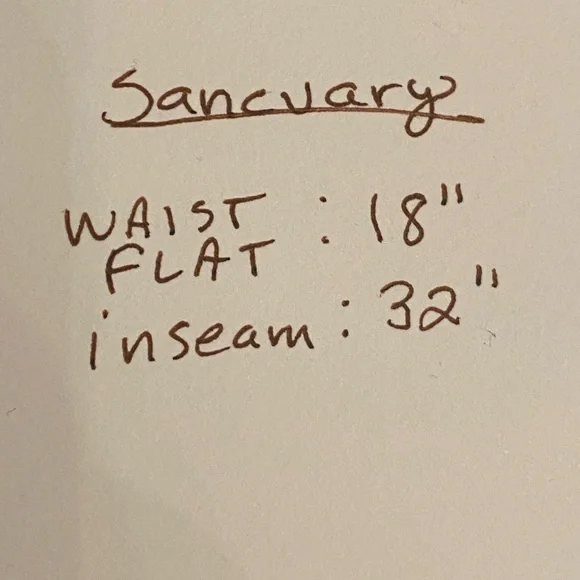 Sancuary
WAIST : 18"
FLAT
inseam : 32"